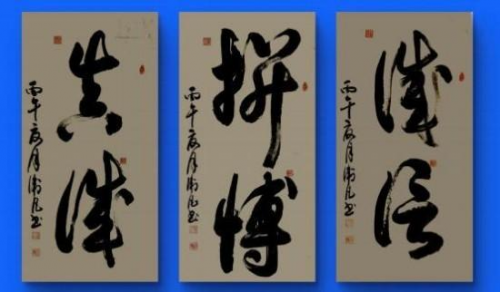 真诚
丙午夏月
拼搏
丙午夏月
诚信
丙午夏月